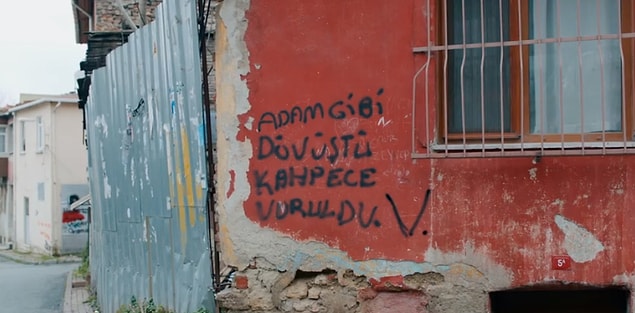 ADAM GİBİ
DÖVÜŞTÜ
KAHPECE
VURULDU. V.
5A